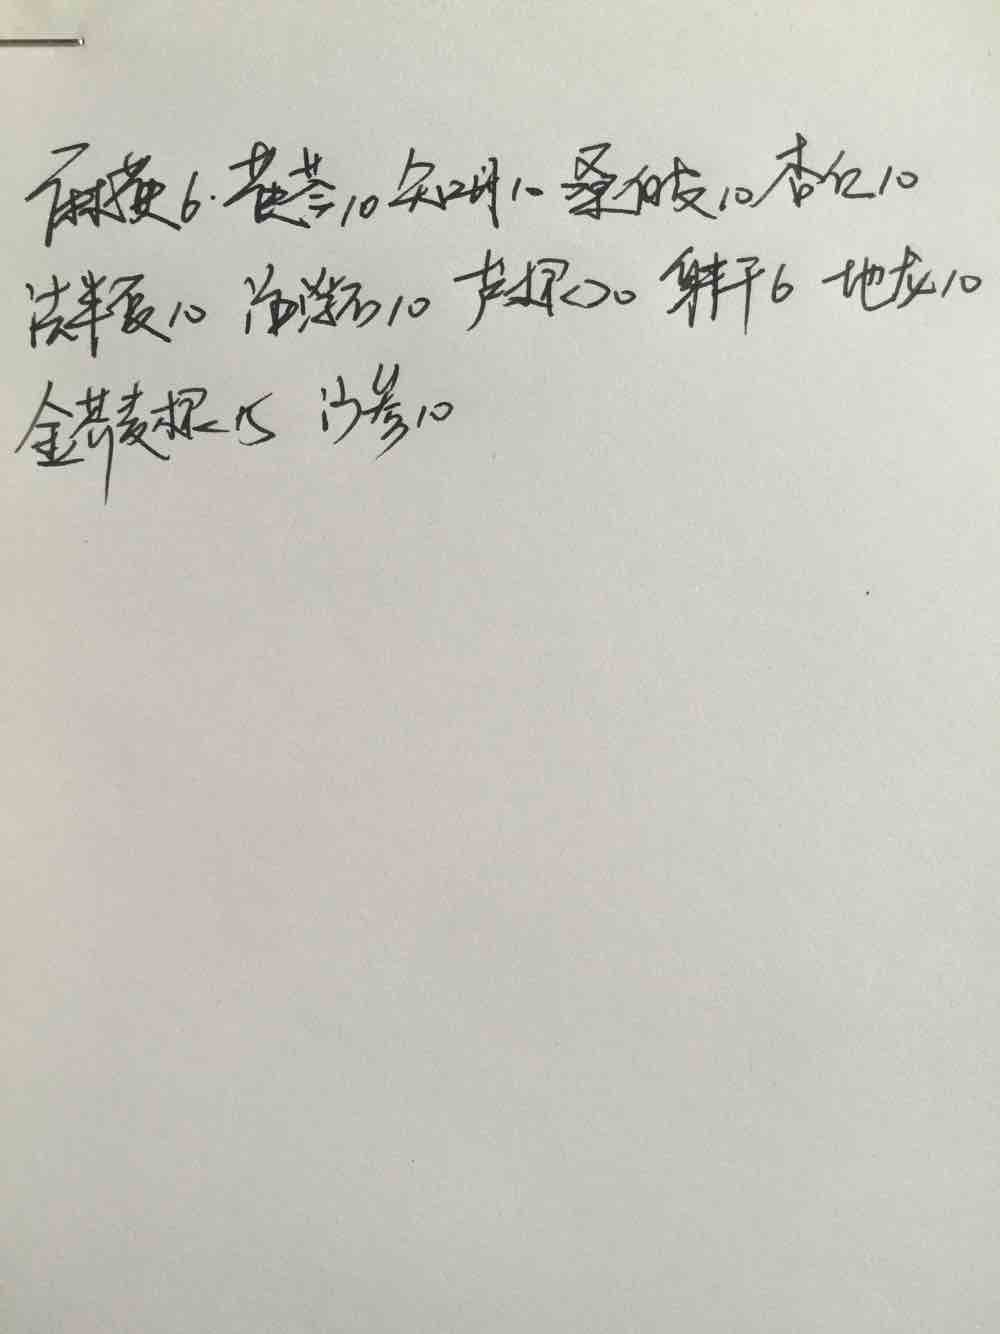 麻黄6.黄芩10 知母10 桑白皮10 杏仁10
法半夏10 海浮石10 芦根20 射干6 地龙10
金荞麦根15 沙参10